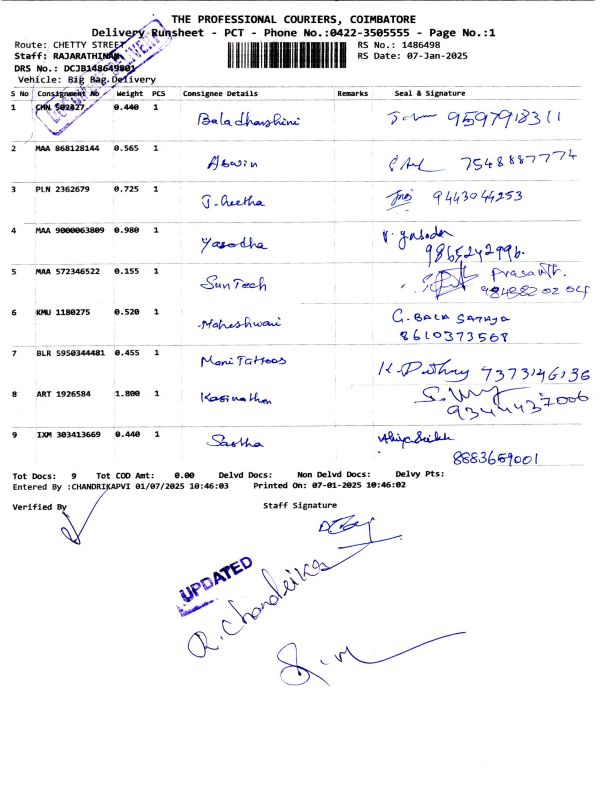 THE PROFESSIONAL COURIERS, COIMBATORE
Delivery Runsheet - PCT - Phone No.:0422-3505555 - Page No.:1
Route: CHETTY STREET RS No.: 1486498
Staff: RAJARATHINAM RS Date: 07-Jan-2025
DRS No.: DCJB148649801
Vehicle: Big Bag Delivery
S No Consignment No Weight PCS Consignee Details Remarks Seal & Signature
1 CHN 502427 0.440 1 Baladharshini 9597918311
2 MAA 868128144 0.565 1 Aswin 7548887774
3 PLN 2362679 0.725 1 J. Geetha 9443044253
4 MAA 9000063809 0.980 1 Yasodha V. Yasoda
9865242996.
5 MAA 572346522 0.155 1 SunTech Prasanth.
6 KMU 1180275 0.520 1 Maheshwari G. BALA
8610373508
7 BLR 5950344481 0.455 1 Mani Tattoos K. 7373146136
8 ART 1926584 1.800 1 Kasinathan
9344437006
9 IXM 303413669 0.440 1 Sastha
8883659001
Tot Docs: 9 Tot COD Amt: 0.00 Delvd Docs: Non Delvd Docs: Delvy Pts:
Entered By :CHANDRIKAPVI 01/07/2025 10:46:03 Printed On: 07-01-2025 10:46:02
Verified By Staff Signature
UPDATED
R. Chandrika